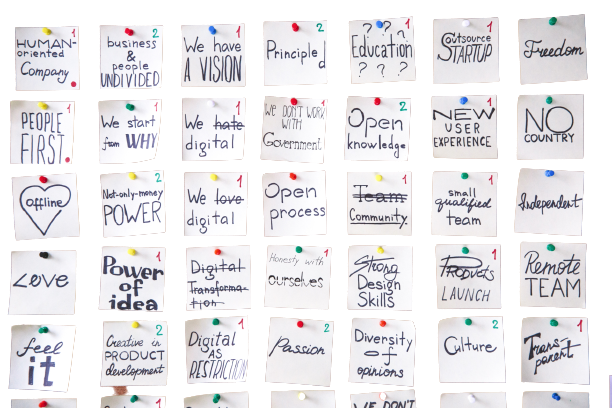 HUMAN-
oriented
Company.
1
business
&
people
UNDIVIDED
2
We have
A VISION
1
Principled
2
? ? ?
Education
? ? ?
1
Outsource
STARTUP
1
Freedom
PEOPLE
FIRST.
1
We start
from WHY
1
We hate
digital
1
WE DON'T WORK
WITH
Government
1
Open
knowledge
2
NEW
USER
EXPERIENCE
1
NO
COUNTRY
offline
Not-only-money
POWER
2
We love
digital
1
Open
process
Team
Community.
1
small
qualified
team
1
Independent
Love
Power
of
idea
1
Digital
Transforma-
tion
1
Honesty with
ourselves
1
Strong
Design
Skills
Products
LAUNCH
1
Remote
TEAM
feel
it
Creative in
PRODUCT
development
2
Digital
AS
RESTRICTION
1
Passion
2
Diversity
of
opinions
Culture
2
Trans-
parent
1
WE DON'T